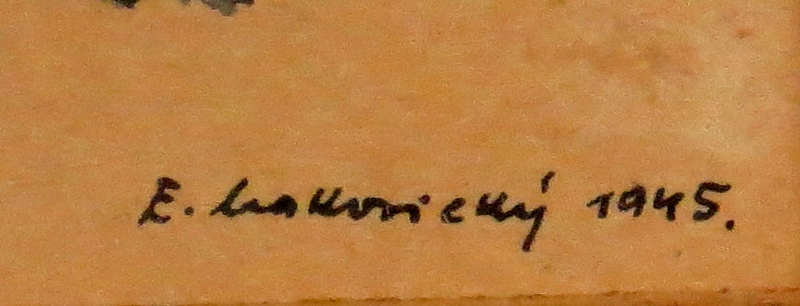 E. Makovický 1945.